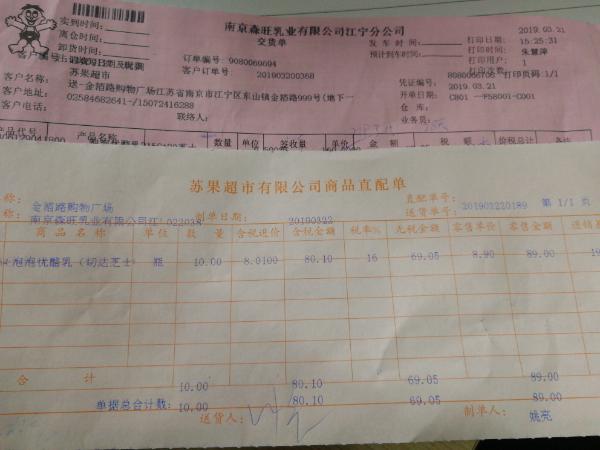 南京森旺乳业有限公司江宁分公司
交货单
实到时间:
离仓时间:
卸货时间:
发车时间:
预计到车时间:
打印日期: 2019.03.21
打印时间: 15:25:31
打印人: 朱慧萍
打印用户: 1
打印页码:1/1
订单编号: 9080069694
客户订单号: 201903200368
客户名称: 苏果超市
客户地址: 送-金箔路购物广场江苏省南京市江宁区东山镇金箔路999号(地下一
客户电话: 02584682641-/15072416288
联络人:
凭证编号:
开单日期: 2019.03.21
仓库: C801 -F58001-C001
业务员:
数量 单位 签收量 金额 税额 价税总计 备注
苏果超市有限公司商品直配单
称: 金箔路购物广场
称: 南京森旺乳业有限公司江 022038
制单日期: 20190322
直配单号:
送货单号: 201903220189 第 1/1 页
商品名称 单位 数量 含税进价 含税金额 税率% 无税金额 零售单价 零售金额
泡泡优酪乳(切达芝士 瓶 10.00 8.0100 80.10 16 69.05 8.90 89.00
合计 10.00 80.10 69.05 89.00
单据总合计数: 10.00 80.10 69.05 89.00
送货人: 制单人: 姚亮